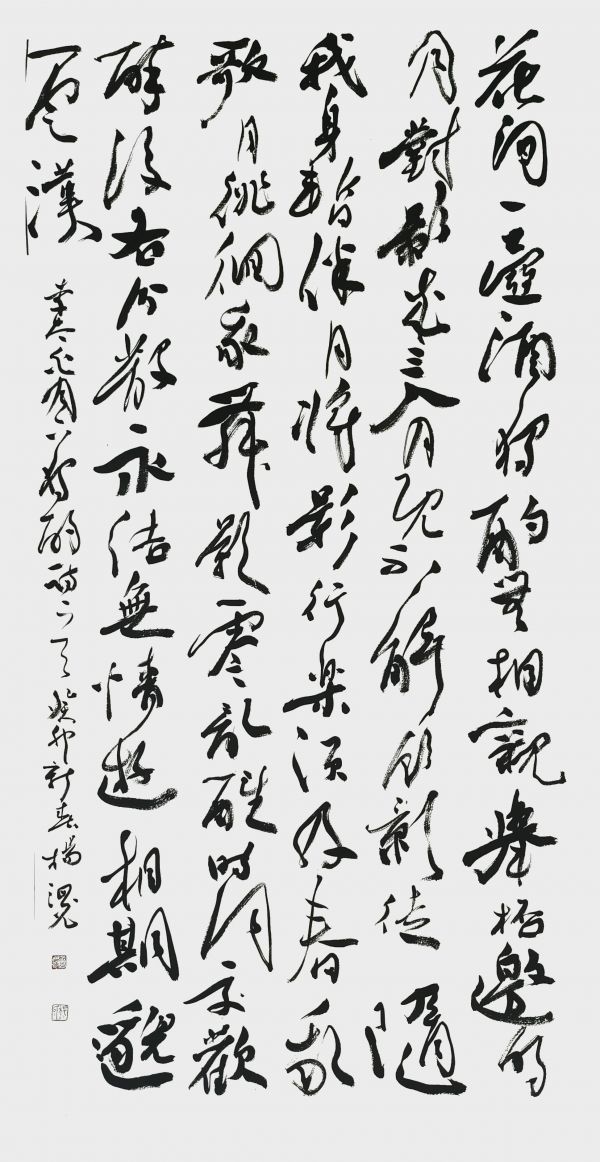 花間一壺酒獨酌無相親舉杯邀明
月對影成三人月既不解飲影徒隨
我身暫伴月將影行樂須及春我
歌月徘徊我舞影零亂醒時同交歡
醉後各分散永結無情遊相期邈
雲漢
李太白月下獨酌詩一首癸卯新春楊